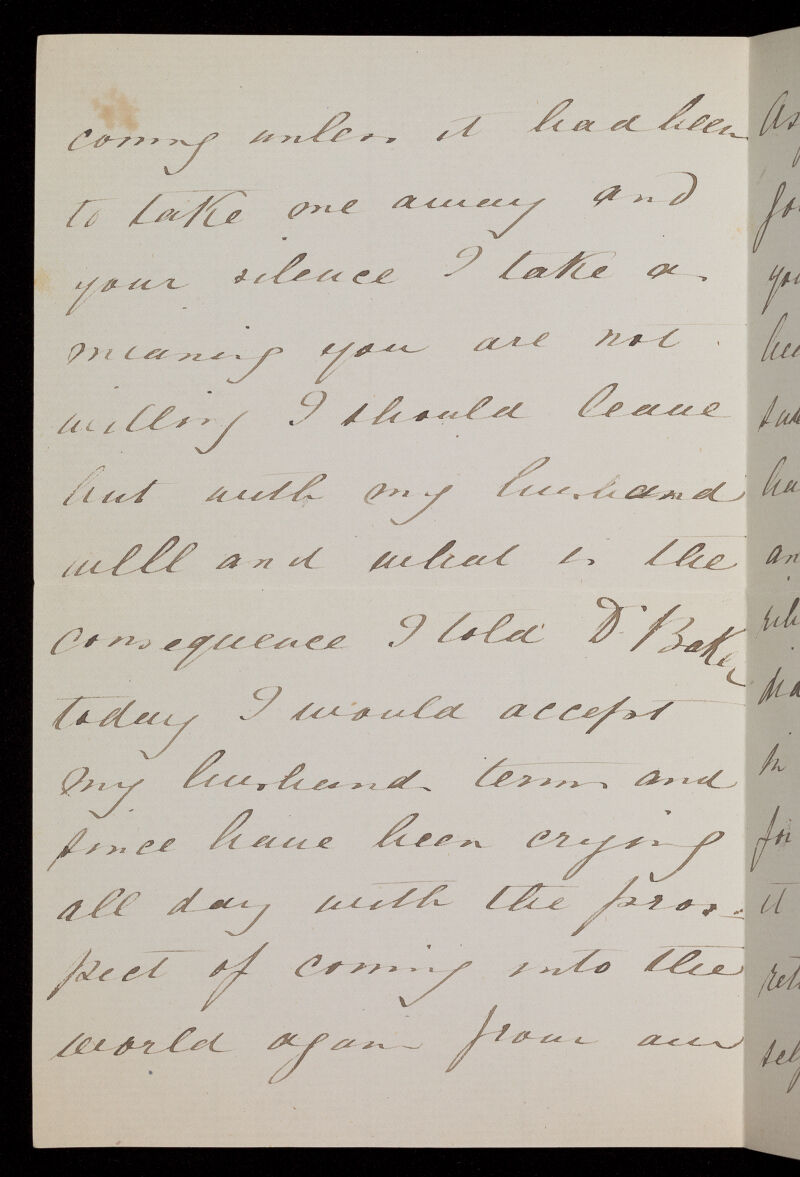 coming unless it had been
to take me away and
your silence I take as
meaning you are not
willing I should leave
but with my husband
will and what is the
consequence I told Dr Baker
today I would accept
my husbands terms and
since have been crying
all day with the pros-
pect of coming into the
world again from an